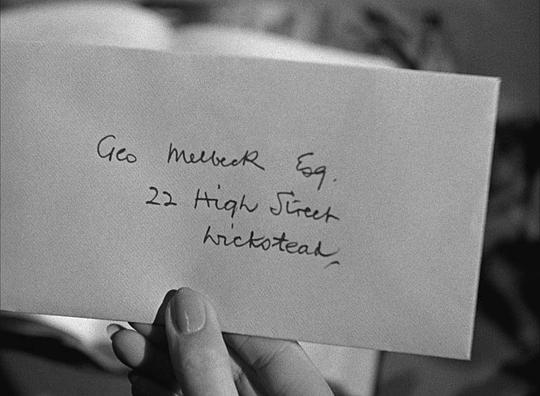 Geo Melbeck Esq.
22 High Street
Wickstead,